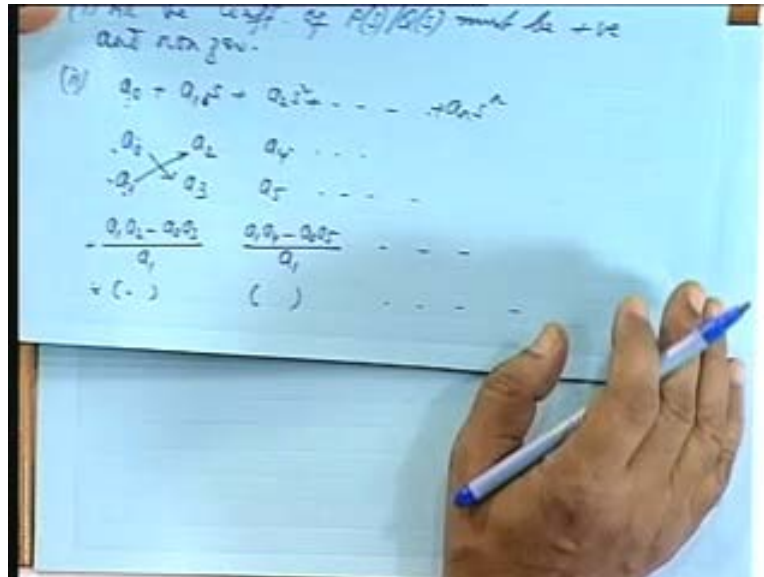 (i) All the coeff. of P(s)/Q(s) must be +ve
and non zero.
(ii) a₀ + a₁s + a₂s² + - - - + aₙsⁿ
a₀ a₂ a₄ ...
a₁ a₃ a₅ - - - -
(a₁a₂ - a₀a₃)/a₁ (a₁a₄ - a₀a₅)/a₁ - - -
( ) ( ) - - - -